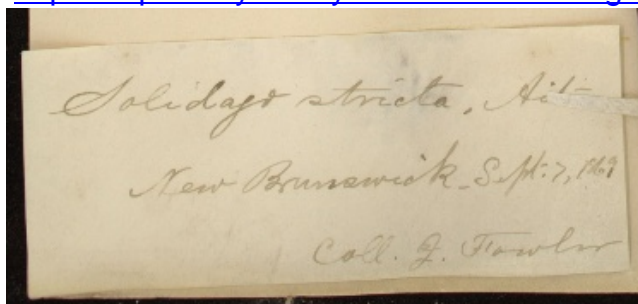 Solidago stricta, Ait.
New Brunswick, Sept. 7, 1869
Coll. J. Fowler